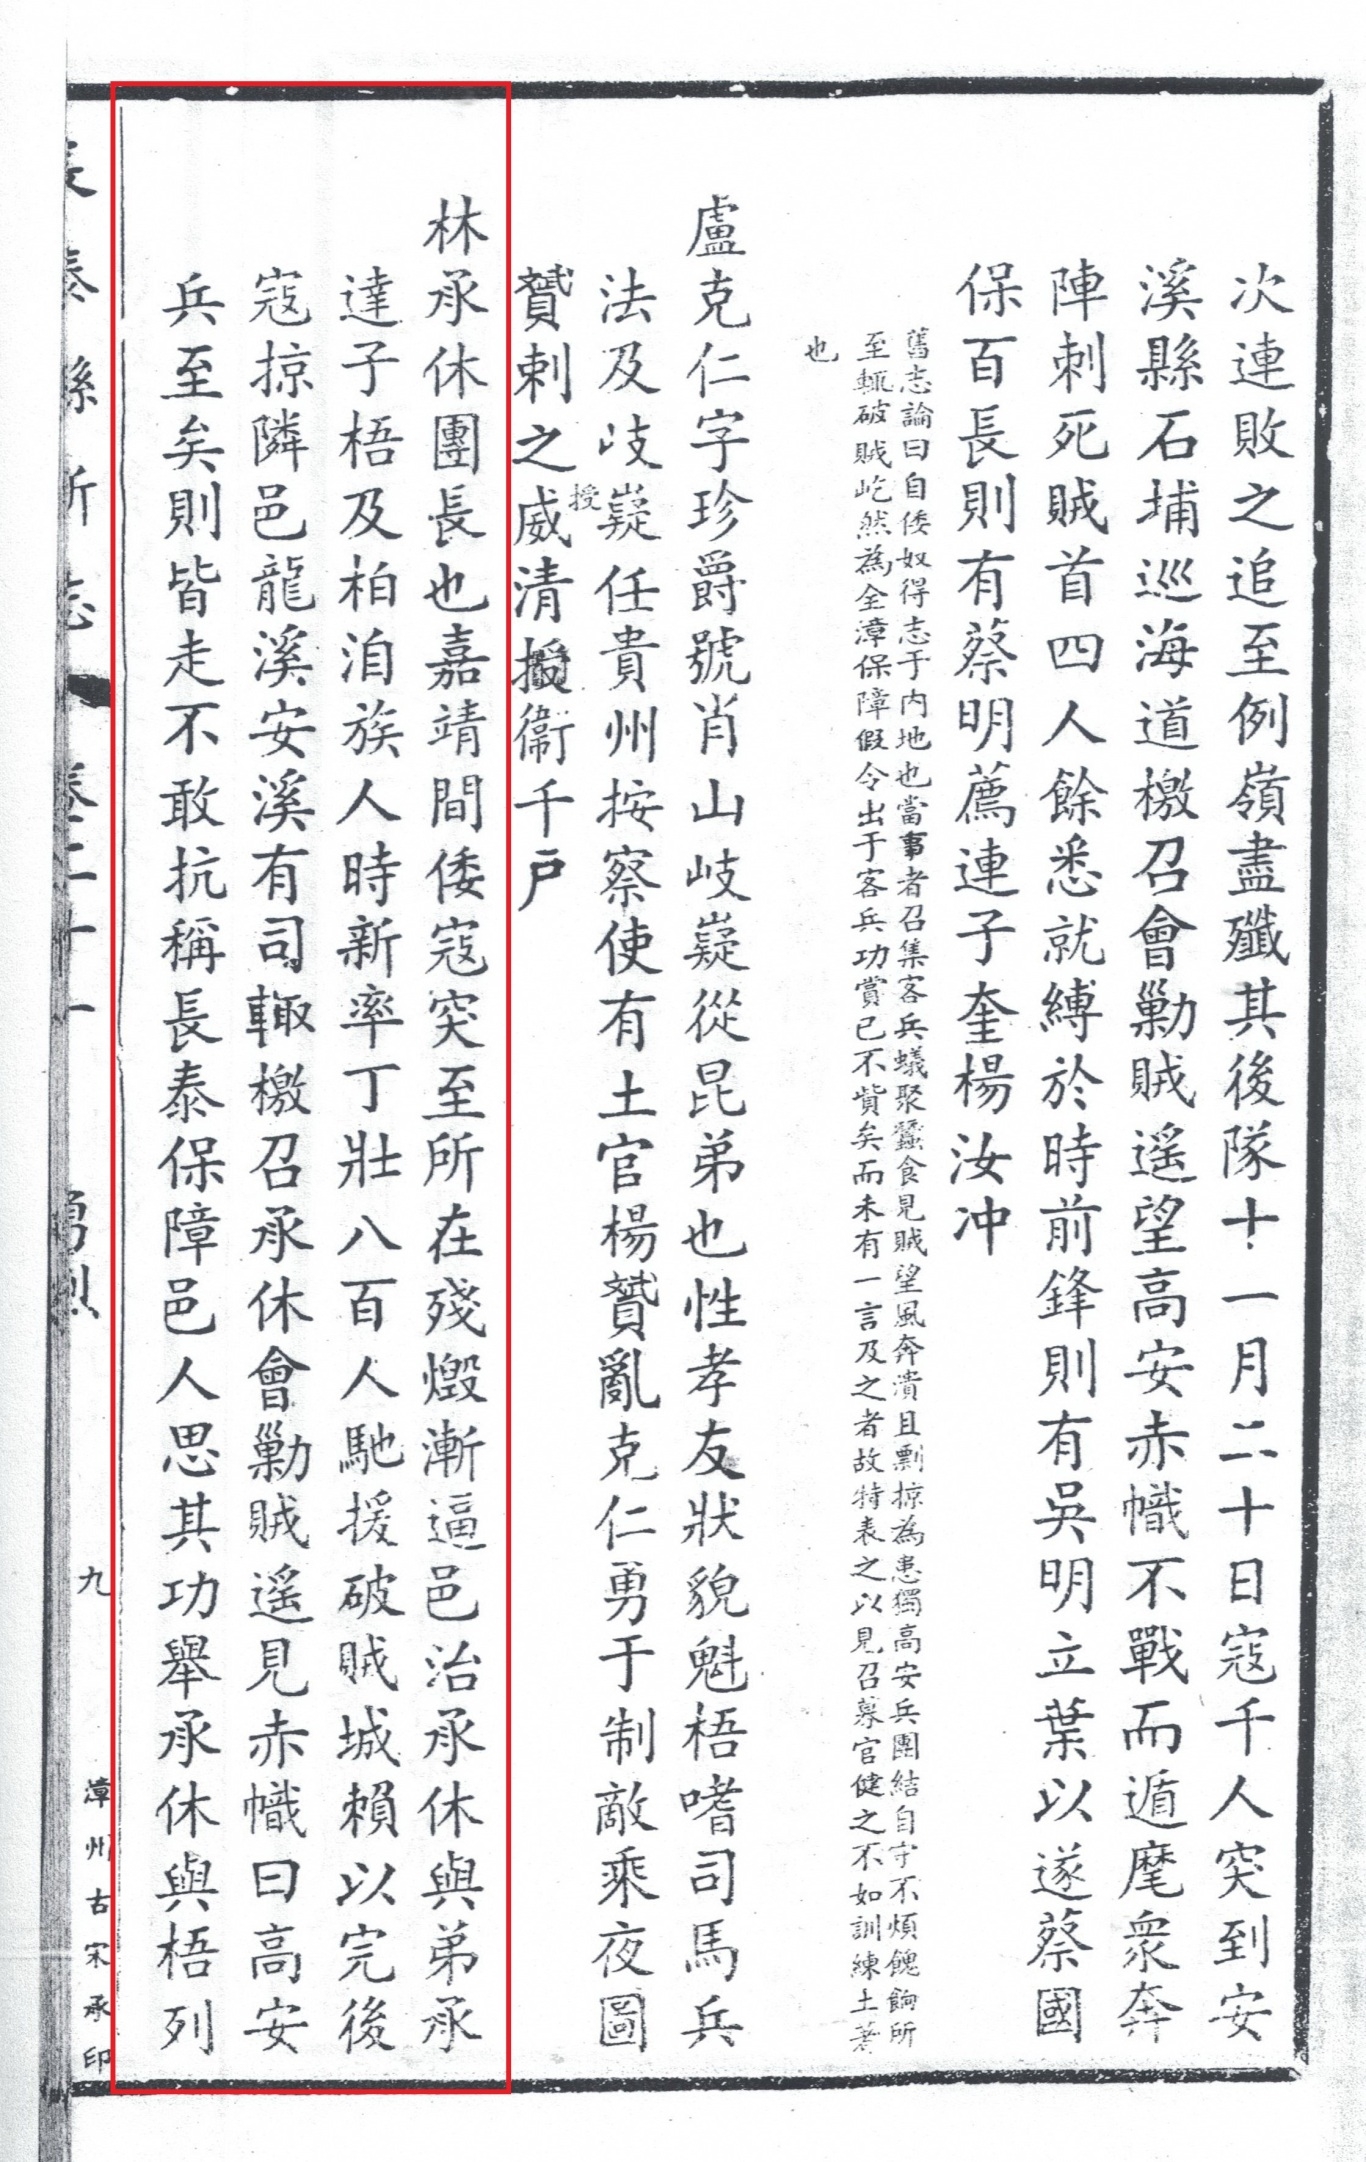 次連敗之追至例嶺盡殲其後隊十一月二十日寇千人突到安
溪縣石埔巡海道檄召會勦賊遥望高安赤幟不戰而遁麾衆奔
陣刺死賊首四人餘悉就縛於時前鋒則有吳明立葉以遂蔡國
保百長則有蔡明薦連子奎楊汝冲
舊志論曰自倭奴得志于内地也當事者召集客兵蟻聚蠶食見賊望風奔潰且剽掠為患獨高安兵團結自守不煩餽餉所
至輒破賊屹然為全漳保障假令出于客兵功賞已不貲矣而未有一言及之者故特表之以見召募官健之不如訓練土著
也
盧克仁字珍爵號肖山岐嶷從昆弟也性孝友狀貌魁梧嗜司馬兵
法及岐嶷任貴州按察使有土官楊贇亂克仁勇于制敵乘夜圖
授
贇剌之威清授衞千戶
林承休團長也嘉靖間倭寇突至所在殘燬漸逼邑治承休與弟承
達子梧及柏洎族人時新率丁壯八百人馳援破賊城賴以完後
寇掠隣邑龍溪安溪有司輙檄召承休會勦賊遥見赤幟曰高安
兵至矣則皆走不敢抗稱長泰保障邑人思其功舉承休與梧列
長泰縣新志
卷二十一
勇烈
九
漳州古宋承印